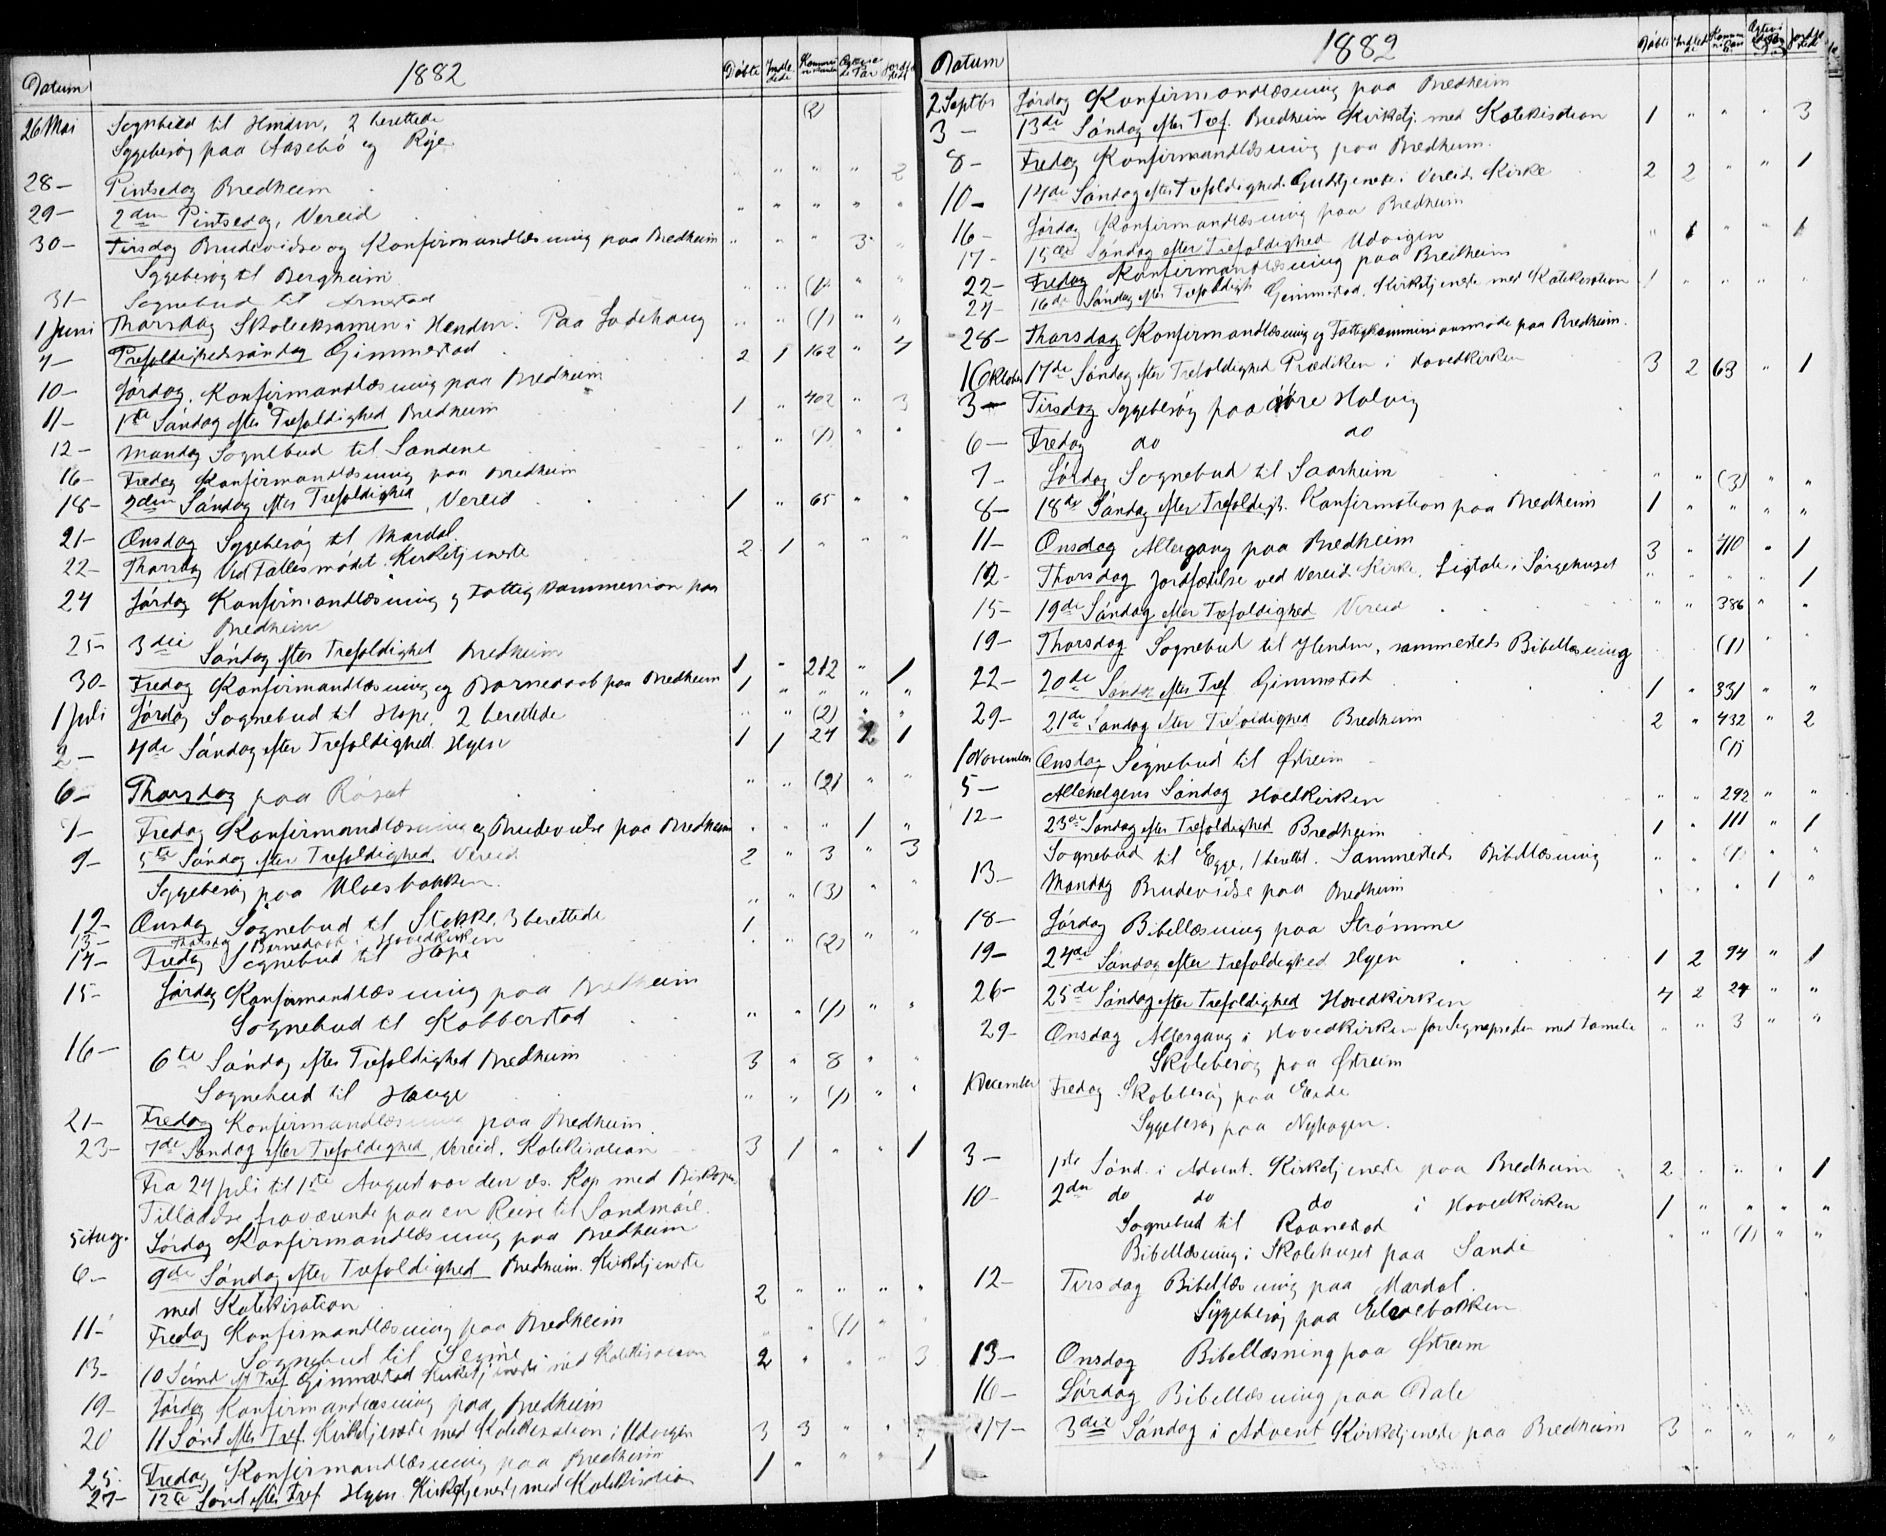 Datum 1882 Döbte Indledede Kommunikanter Ægtevi. Par Jordf.
26 Mai Sognebud til Hinden, 2 berettede (2)
Sygebesög paa Aasebö og Ryg
28 — Pintsedag Bredheim " " " 2
29 — 2den Pintsedag, Vereid " " " " "
30 — Tirsdag Brudevidse og Konfirmandlæsning paa Bredheim " " " 3 "
Sygebesög til Bergheim
31 — Sognebud til Arnestad " " (1) " "
1 Juni Thorsdag Skoleeksamen i Henden. Paa Godehaug " " (1) " "
4 — Trefoldighedssöndag Gimmestad 2 1 162 " 4
10 — Lördag, Konfirmandlæsning paa Bredheim
11 — 1ste Söndag efter Trefoldighed Bredheim 1 " 402 " 3
12 — Mandag Sognebud til Sandene " (1) " "
16 — Fredag Konfirmandlæsning paa Bredheim
18 — 2den Söndag efter Trefoldighed, Vereid 1 " 65 " "
21 — Onsdag Sygebesög til Mardal
22 — Thorsdag Ved Fællesmödet. Kirketjeneste 2 1 " " "
24 Lördag Konfirmandlæsning og Fattigkommission paa
Bredheim
25 — 3die Söndag efter Trefoldighed Bredheim 1 " 212 " 1
30 — Fredag Konfirmandlæsning og Barnedaab paa Bredheim 1 " " " "
1 Juli Lördag Sognebud til Hope, 2 berettede " " (2) " "
2 — 4de Söndag efter Trefoldighed Hyen 1 1 24 2 1
6 — Thorsdag paa Röset " " (2) " "
7 — Fredag Konfirmandlæsning og Brudevielse paa Bredheim " " " 1 "
9 — 5te Söndag efter Trefoldighed Vereid 2 " 3 " 3
Sygebesög paa Ulvesbakken
12 — Onsdag Sognebud til Stokke, 3 berettede " " (3) " "
13 — Thorsdag Barnedaab i Hovedkirken 1 " " "
14 — Fredag Sognebud til Hope " " (2) " "
15 — Lördag Konfirmandlæsning paa Bredheim
Sognebud til Kobberstad " " (1) " "
16 — 6te Söndag efter Trefoldighed Bredheim 3 " 8 " "
Sognebud til Hauge " " (1) " "
21 — Fredag Konfirmandlæsning paa Bredheim.
23 — 7de Söndag efter Trefoldighed, Vereid. Katekisation 3 1 " " 1
Fra 24 Juli til 1ste August var den rs. Kap med Biskopens
Tilladelse fraværende paa en Reise til Söndmöre.
5 Aug. Lördag Konfirmandlæsning paa Bredheim
6 — 9de Söndag efter Trefoldighed Bredheim. Kirketjeneste
med Katekisation 2 " " " "
11 — Fredag Konfirmandlæsning paa Bredheim
Sognebud til " " (1) " "
13 — 10 Sönd eft Tref Gimmestad Kirketjeneste med Katekisation 2 " " " 3
19 — Lördag Konfirmandlæsning paa Bredheim
20 11 Sönd efter Tref. Kirketjeneste med Katekisation i Udvigen 3 3 " "
25. Fredag Konfirmandlæsning paa Bredheim
27 — 12te Sönd efter Tref Hyen Kirketjeneste med Katekisation 1 " " " 1
Datum 1882 Döbte Indlede Kommunikan
2 Septbr Lördag Konfirmandlæsning paa Bredheim
3 — 13de Söndag efter Tref. Bredheim Kirketj. med Katekisation 1 " " " 3
8 — Fredag Konfirmandlæsning paa Bredheim.
10 — 14de Söndag efter Trefoldighed Gudstjeneste i Vereid Kirke 2 2 " " 1
16 — Lördag Konfirmandlæsning paa Bredheim
17 — 15de Söndag efter Trefoldighed Udvigen " 1 " " 1
22 — Fredag Konfirmandlæsning paa Bredheim
24 — 16de Söndag efter Trefoldigh Gimmestad. Kirketjeneste med Katekisation 1 " " " "
28 — Thorsdag Konfirmandlæsning og Fattigkommissionsmöde paa Bredheim.
1 Oktober 17de Söndag efter Trefoldighed Prædiken i Hovedkirken 3 2 63 " 1
3 — Tirsdag Sygebesög paa övre Holvig
6 — Fredag do do
7 — Lördag Sognebud til Saarheim " " (3) " "
8 — 18de Söndag efter Trefoldigh. Konfirmation paa Bredheim 1 " " " "
11 — Onsdag Altergang paa Bredheim 3 " 410 " 1
12 — Thorsdag Jordfæstelse ved Vereid Kirke, Ligtale i Sörgehuset " " " " 1
15 — 19de Söndag efter Trefoldighed Vereid " " 386 " "
19 — Thorsdag Sognebud til Henden, sammesteds Bibellæsning (1) " "
22 — 20de Söndag efter Tref. Gimmestad 1 " 331 " "
29 — 21de Söndag efter Trefoldighed Bredheim 2 " 432 " 2
1 November Onsdag Sognebud til Østreim (1)
5 — Allehelgens Söndag Hovedkirken " " 292 " "
12 — 23de Söndag efter Trefoldighed Bredheim 1 " 111 " 1
Sognebud til Egge, 1 berettet. Sammesteds Bibellæsning " " (1) " "
13 — Mandag Brudevidse paa Bredheim " " " 1 "
18 — Lördag Bibellæsning paa Strömme
19 — 24de Söndag efter Trefoldighed Hyen 1 2 94 " 1
26 — 25de Söndag efter Trefoldighed Hovedkirken 4 2 24 " "
29 — Onsdag Altergang i Hovedkirken for Sognepresten med Familie " " 3 " "
Skolebesög paa Østreim
1 December Fredag Skolebesög paa Eide
Sygebesög paa Nyhagen.
3 — 1ste Sönd. i Advent. Kirketjeneste paa Bredheim 2 " " " 1
10 — 2den do do do i Hovedkirken 1 " " " "
Sognebud til Raanestad " " (1) " "
Bibellæsning i Skolehuset paa Sande
12 — Tirsdag Bibellæsning paa Mardal.
Sygebesög paa Elvebakken
13 — Onsdag Bibellæsning paa Østreim
16 — Lördag Bibellæsning paa Dale
17 — 3die Söndag i Advent Kirketjeneste paa Bredheim 3 " " " "